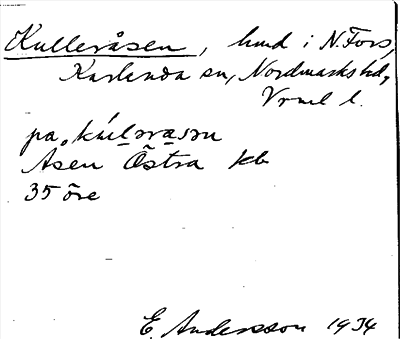 Kulleråsen, hmd i N. Fors,
Karlanda sn, Nordmarks hd,
Vrml l.
på, kúlərasən
Åsen Östra kb
35 öre
E. Andersson 1934